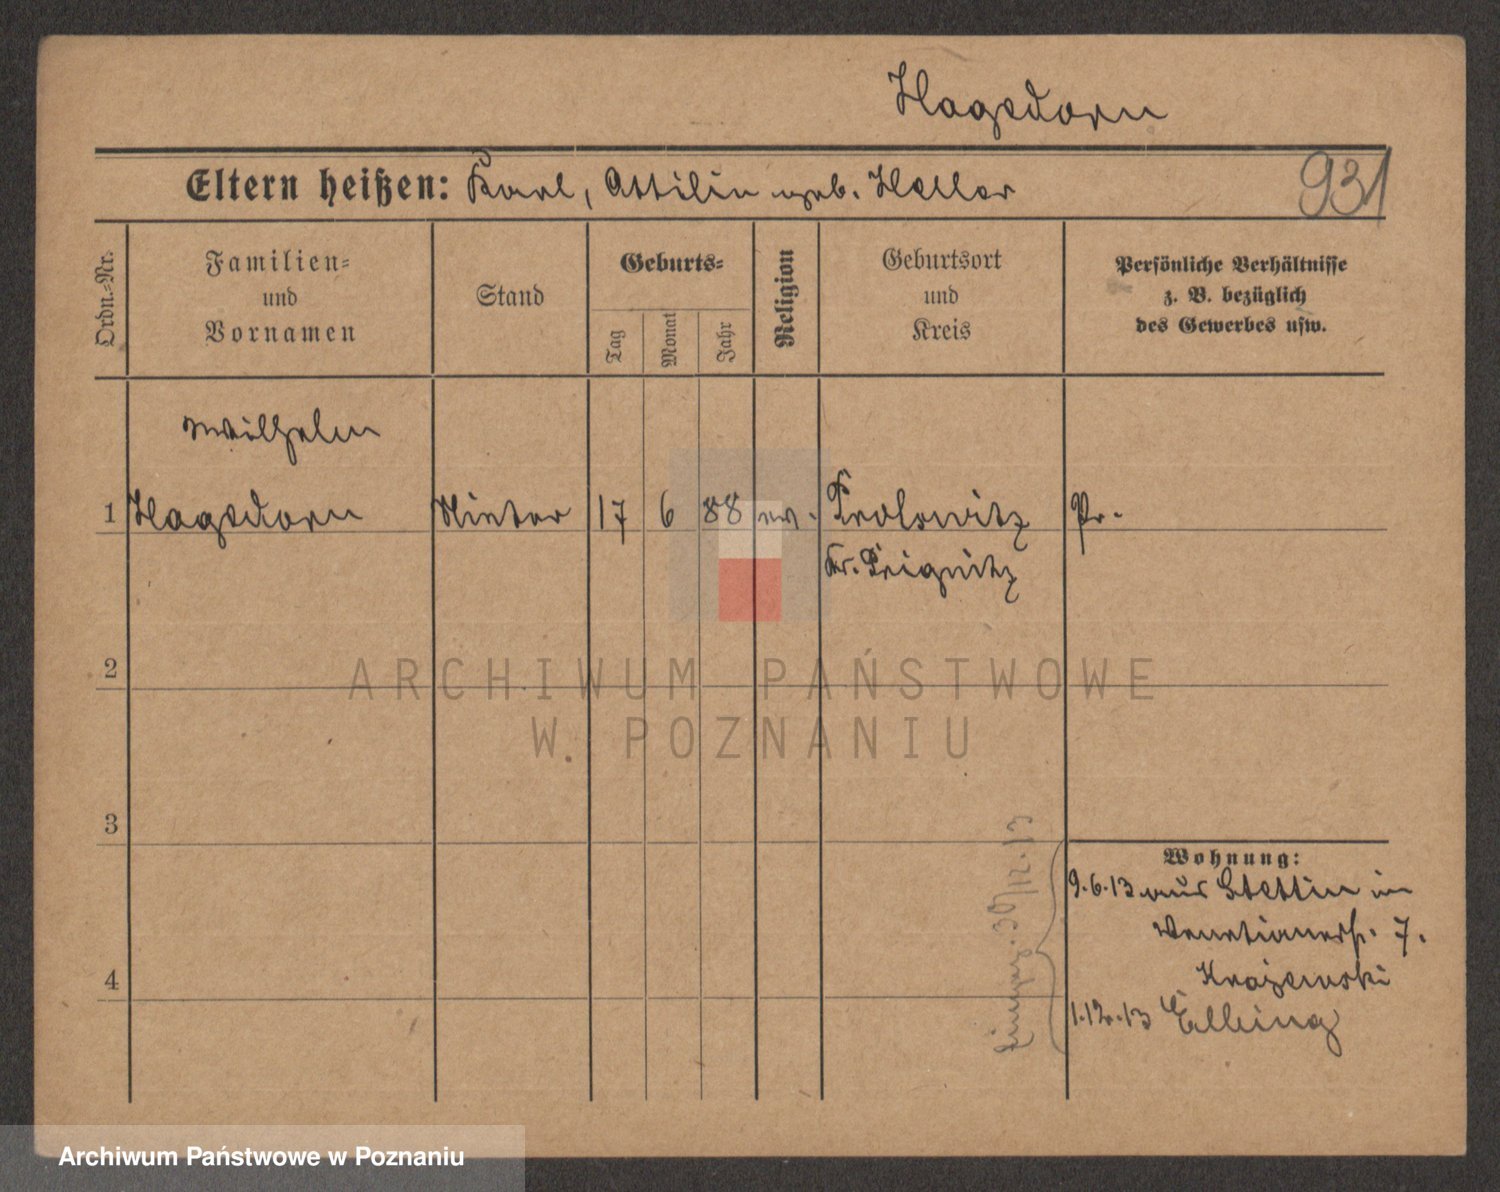 Hagedorn
Eltern heißen: Karl, Ottilie geb. Heller
931
Ordn.=Nr.
Familien=
und
Vornamen
Stand
Geburts=
Tag
Monat
Jahr
Religion
Geburtsort
und
Kreis
Persönliche Verhältnisse
z. B. bezüglich
des Gewerbes usw.
Wilhelm
1 Hagedorn 17 6 88 ev. Pr.
Kr. Prignitz
2
ARCHIWUM PAŃSTWOWE
W POZNANIU
3
Wohnung:
9.6.13 aus Stettin in
Venetianerstr. 7.
Krajewski
4
1.12.13 Elbing
30/12.13
Archiwum Państwowe w Poznaniu